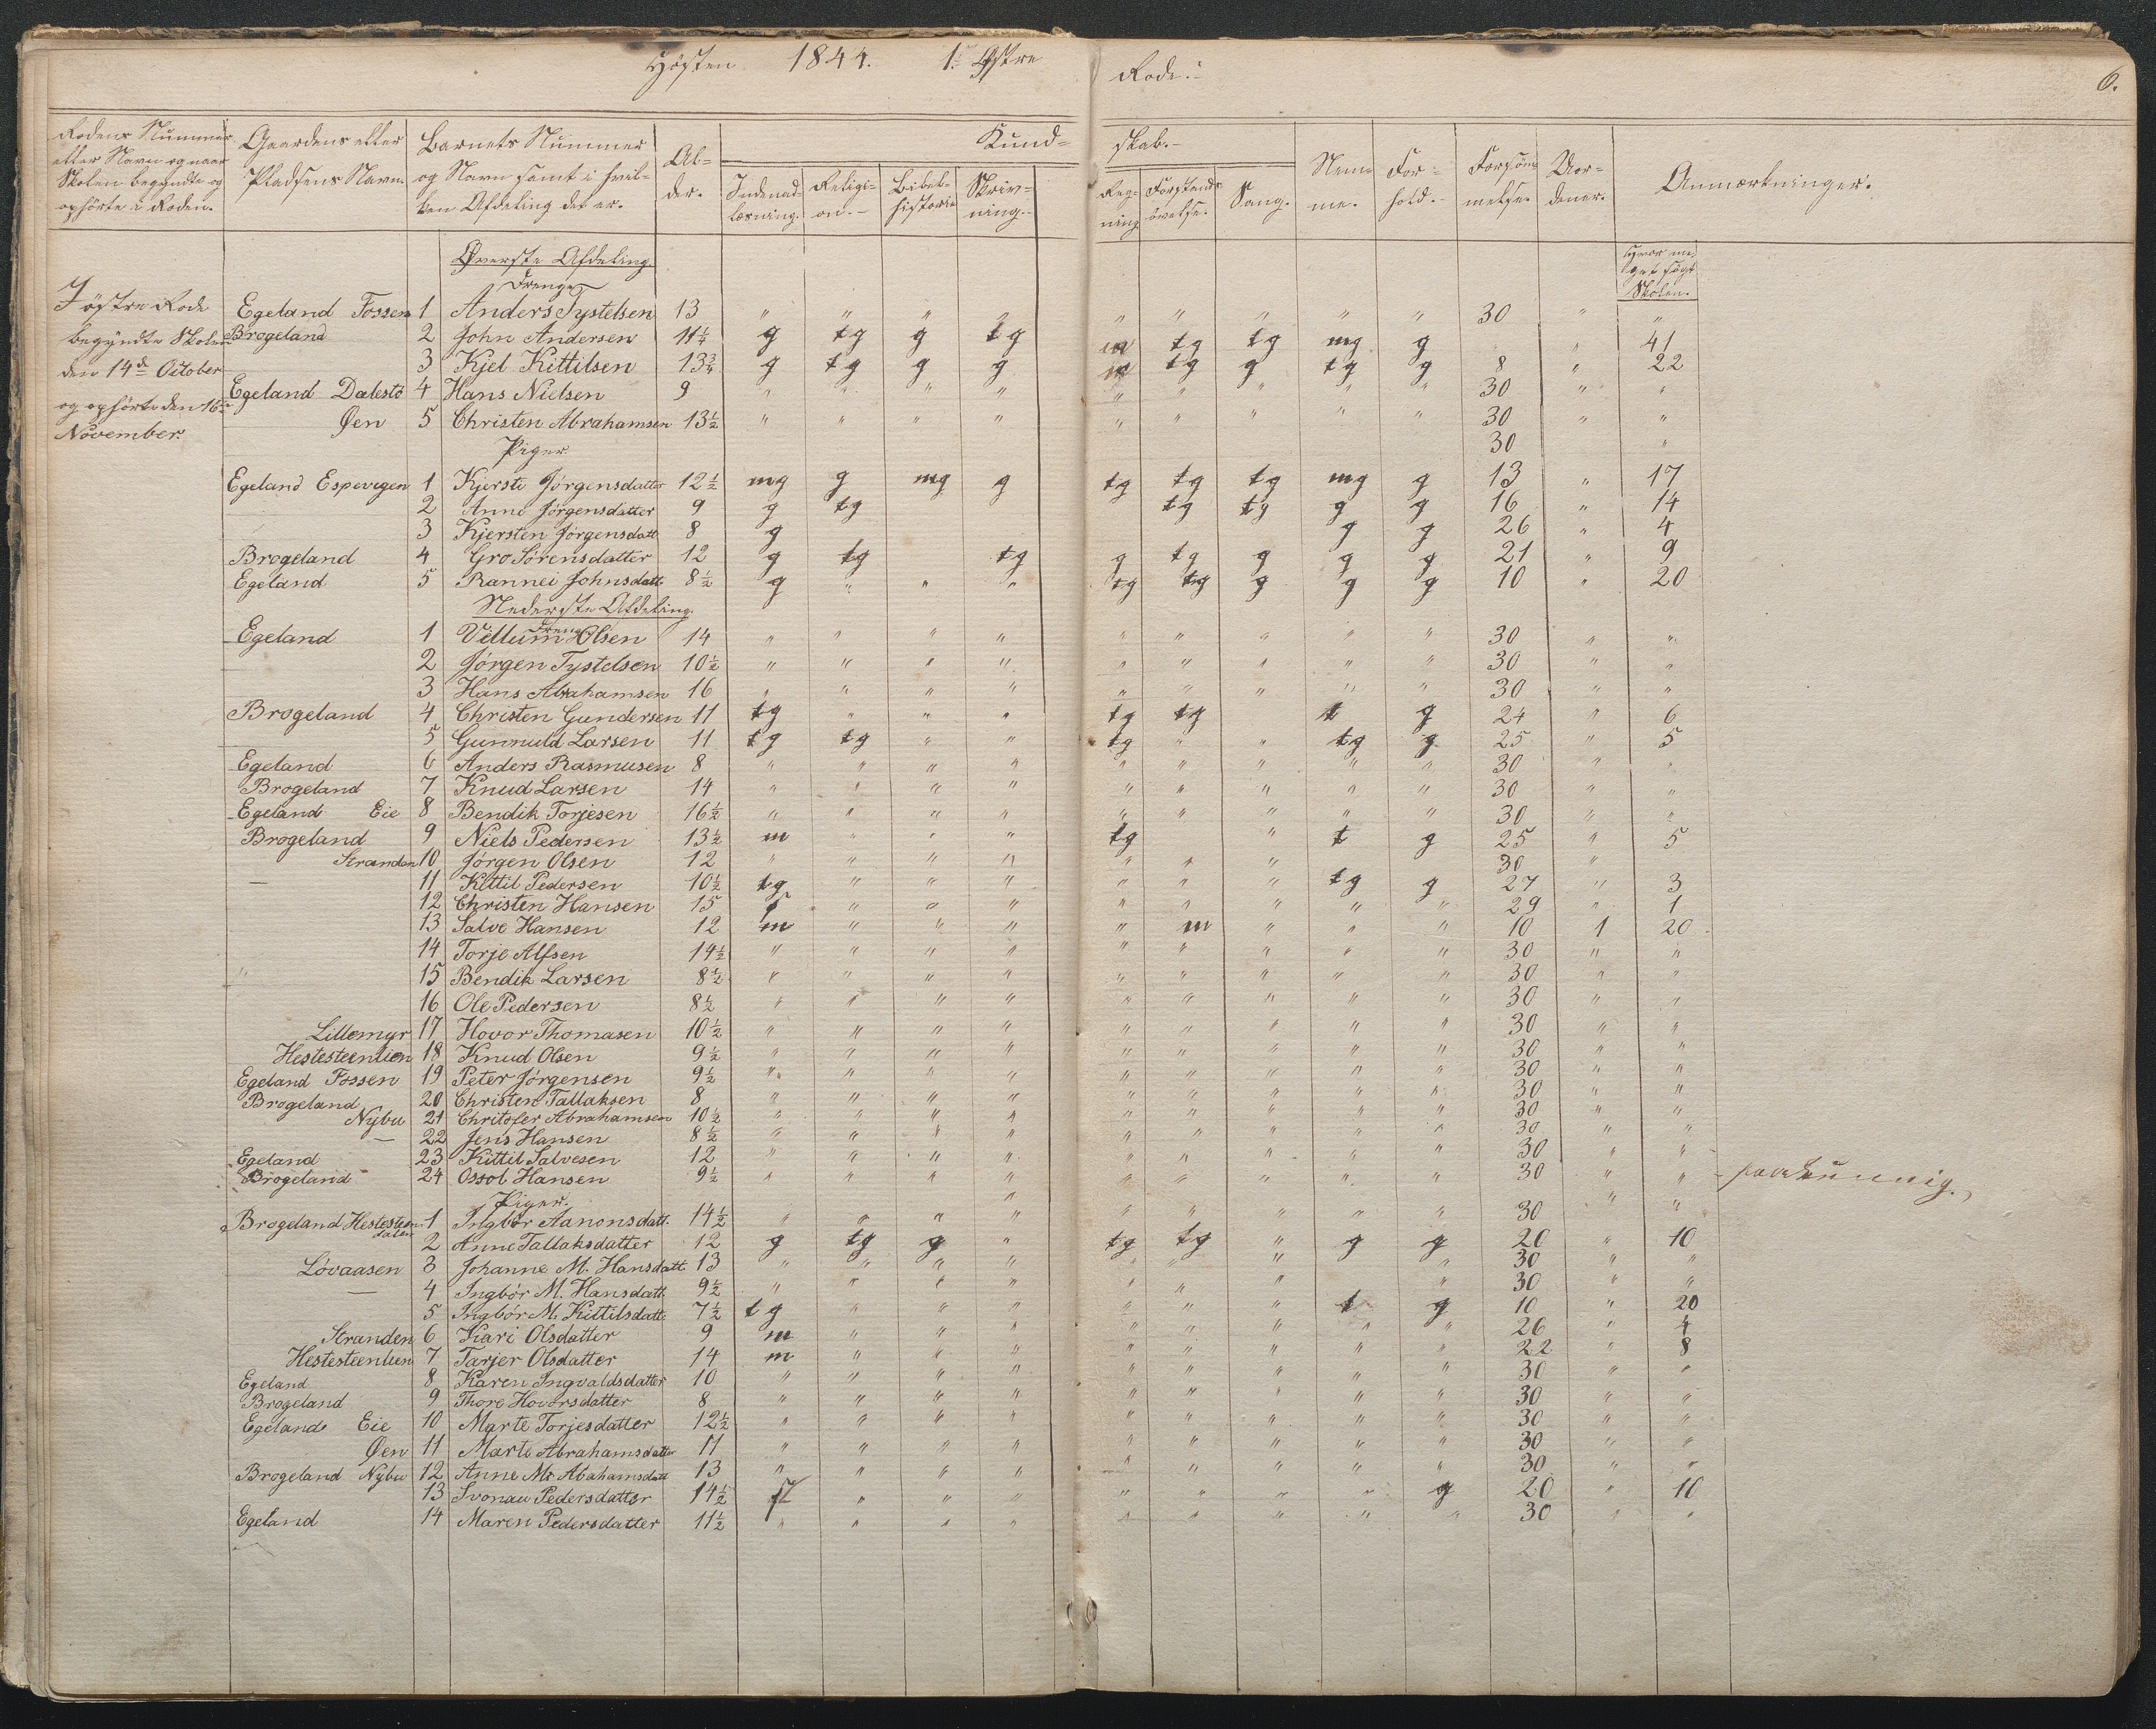 Høsten 1844. 1. Østre Rode:
6.
Rodens Nummer eller Navn og naar Skolen begyndte og ophørte i Roden.
Gaardens eller Pladsens Navn.
Barnets Nummer og Navn samt i hvilken Afdeling det er.
Alder.
Kundskab.
Indenadlæsning.
Religion.
Bibelhistorie
Skrivning.
Regning
Forstandsøvelse.
Sang.
Nemme.
Forhold.
Forsømmelse.
Uordener.
Anmærkninger.
Hvor meget søgt Skolen.
I østre Rode begyndte Skolen den 14de October og ophørte den 16de November.
Øverste Afdeling.
Drenge
Egeland Fossen 1 Anders Tystelsen 13 " " " " " " " " " 30 " "
Brogeland 2 John Andersen 11 1/4 g tg g tg m tg tg mg g " 41
3 Kjel Kittilsen 13 3/4 g tg g g m tg g tg g 8 " 22
Egeland Dalestö 4 Hans Nielsen 9 " " " " " " " " " 30 " "
Øen 5 Christen Abrahamsen 13 1/2 " " " " " " " " " 30 " "
Piger 30 "
Egeland Espevegen 1 Kjersti Jörgensdatter 12 1/2 mg g mg g tg tg tg mg g 13 " 17
2 Anne Jörgensdatter 9 g tg tg tg g g 16 " 14
3 Kjersten Jörgensdatt 8 g g g 26 " 4
Brogeland 4 Gro Sörensdatter 12 g tg tg g tg g g g 21 " 9
Egeland 5 Rannei Johnsdatt. 8 1/2 g " " " tg tg g g g 10 " 20
Nederste Afdeling.
Drenge
Egeland 1 Villum Olsen 14 " " " " " " " " " 30 " "
2 Jörgen Tystelsen 10 1/2 " " " " " " " " " 30 " "
3 Hans Abrahamsen 16 " " " " " " " " " 30 " "
Brogeland 4 Christen Gundersen 11 tg " " " tg tg t g 24 " 6
5 Gunnuld Larsen 11 tg tg " " tg " " tg g 25 " 5
Egeland 6 Anders Rasmusen 8 " " " " " " " " " 30 " "
Brogeland 7 Knud Larsen 14 " " " " " " " " " 30 " "
Egeland Eie 8 Bendik Torjesen 16 1/2 " " " " " " " " " 30 " "
Brogeland 9 Niels Pedersen 13 1/2 m " " " tg " t g 25 " 5
Stranden 10 Jörgen Olsen 12 " " " " " " " 30 "
— 11 Kittil Pedersen 10 1/2 tg " " " " " " tg g 27 " 3
12 Christen Hansen 15 t " " " " " " " " 29 " 1
13 Salve Hansen 12 m " " " " m " " " 10 1 20
14 Torje Alfsen 14 1/2 " " " " " " " " " 30 " "
" 15 Bendik Larsen 8 1/2 " " " " " " " " " 30 " "
16 Ole Pedersen 8 1/2 " " " " " " " " " 30 " "
Lillemyr 17 Hovor Thomasen 10 1/2 " " " " " " " " " 30 " "
Hestesteenlien 18 Knud Olsen 9 1/2 " " " " " " " " " 30 " "
Egeland Fossen 19 Peter Jörgensen 9 1/2 " " " " " " " " " 30 " "
Brogeland 20 Christen Tallaksen 8 " " " " " " " " " 30 " "
Nybu 21 Chritofer Abrahamsen 10 1/2 " " " " " " " " " 30 " "
— 22 Jens Hansen 8 1/2 " " " " " " " " " 30 " "
Egeland 23 Kittil Salvesen 12 " " " " " " " " " 30 " "
Brogeland 24 Ossol Hansen 9 1/2 " " " " " " " " " 30 " "
Piger.
Brogeland Hestesteendalen 1 Ingbör Aanonsdatt. 14 1/2 " " " " " " " " " 30 " "
2 Anne Tallaksdatter 12 g tg g " tg tg " g g 20 " 10
Lövaasen 3 Johanne M. Hansdatt. 13 " " " " " " " " 30 " "
— 4 Ingbör M. Hansdatt. 9 1/2 " " " " " " " " 30 " "
5 Ingbör M. Kittilsdatt. 7 1/2 tg " " " " " " t g 10 " 20
Stranden 6 Kari Olsdatter 9 m " " " " " " " " 26 " 4
Hestesteenlien 7 Tarjer Olsdatter 14 m " " " " " " " " 22 " 8
Egeland 8 Karen Ingvaldsdatter 10 " " " " " " " " " 30 " "
Brogeland 9 Thore Hovorsdatter 8 " " " " " " " " " 30 " "
Egeland Eie 10 Marte Torjesdatter 12 1/2 " " " " " " " " " 30 " "
Øen 11 Marte Abrahamsdatter 11 " " " " " " " " " 30 " "
Brogeland Nybu 12 Anne M. Abahamsdatt 13 " " " " " " " " " 30 " "
13 Svonau Pedersdatter 14 1/2 " " " " " " " g 20 " 10
Egeland 14 Maren Pedersdatter 11 1/2 " " " " " " " " " 30 " "